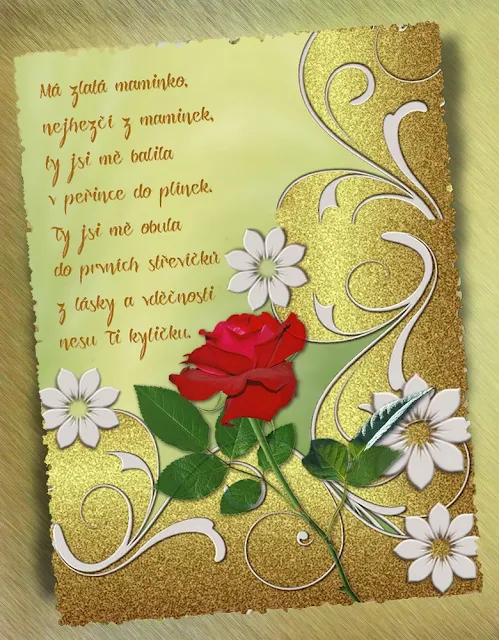 Má zlatá maminko,
nejhezčí z maminek,
ty jsi mě balila
v peřince do plínek.
Ty jsi mě obula
do prvních střevíčků
z lásky a vděčnosti
nesu Ti kytičku.